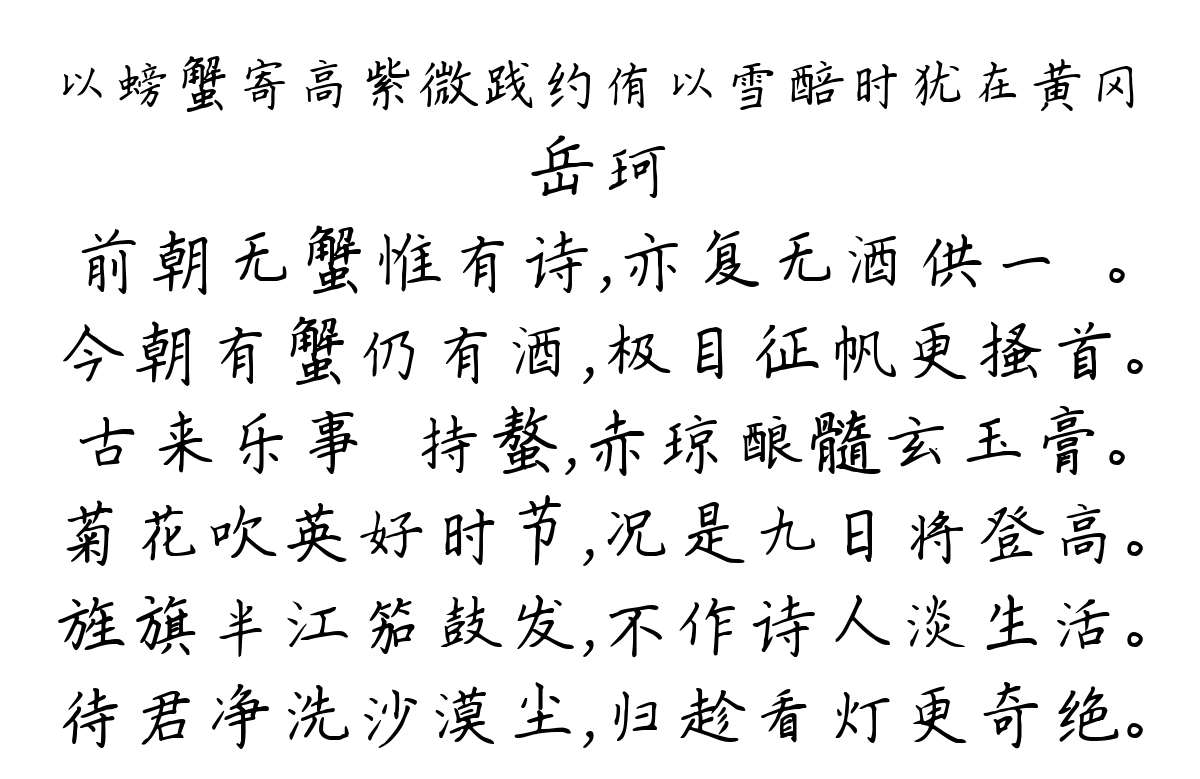 以螃蟹寄高紫微践约侑以雪醅时犹在黄冈
岳珂
前朝无蟹惟有诗,亦复无酒供一 。
今朝有蟹仍有酒,极目征帆更搔首。
古来乐事 持螯,赤琼酿髓玄玉膏。
菊花吹英好时节,况是九日将登高。
旌旗半江笳鼓发,不作诗人淡生活。
待君净洗沙漠尘,归趁看灯更奇绝。